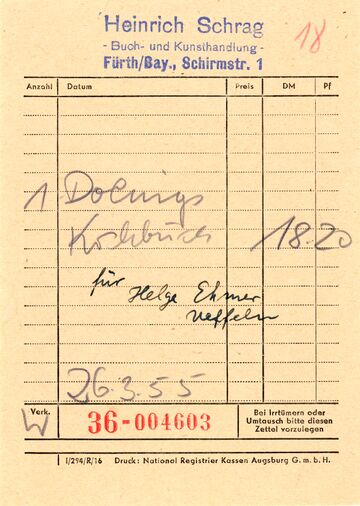 Heinrich Schrag
- Buch- und Kunsthandlung -
Fürth/Bay., Schirmstr. 1
18
Anzahl Datum Preis DM Pf
1 Dohnigs
Kochbuch 18.20
für
Helge Ehmer
26.3.55
Verk.
W
36-004603
Bei Irrtümern oder
Umtausch bitte diesen
Zettel vorzulegen
I/294/R/16 Druck: National Registrier Kassen Augsburg G.m.b.H.